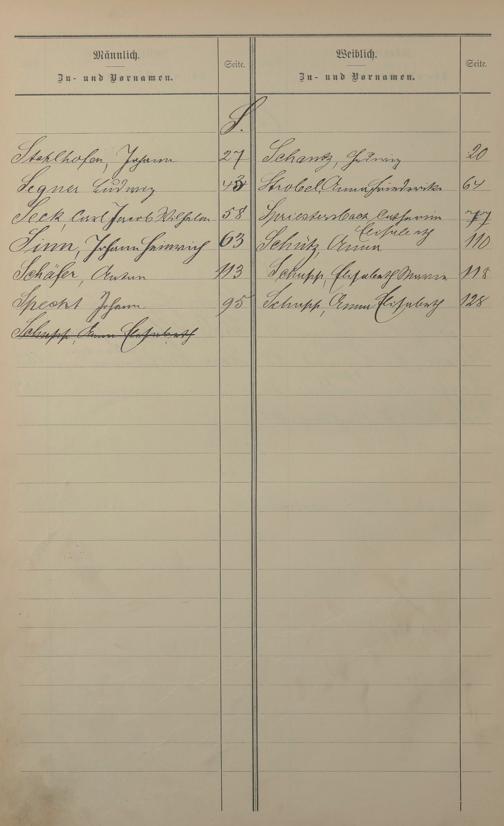 Männlich.
Zu- und Vornamen.
Seite.
Weiblich.
Zu- und Vornamen.
Seite.
S.
Stahlhofen, Johann 27
Segner Ludwig 43
Seck, Carl Jacob Wilhelm 58
Sinn, Johann Heinrich 63
Schäfer, Anton 113
Specht Johann 95
Schupp, Anna Elisabeth
Schantz, Hedwig 20
Strobel, Anna Friederike 64
Spriestersbach, Catharina 77
Elisabeth
Schütz, Anna 110
Schupp, Elisabeth 118
Schupp, Anna Elisabeth 128